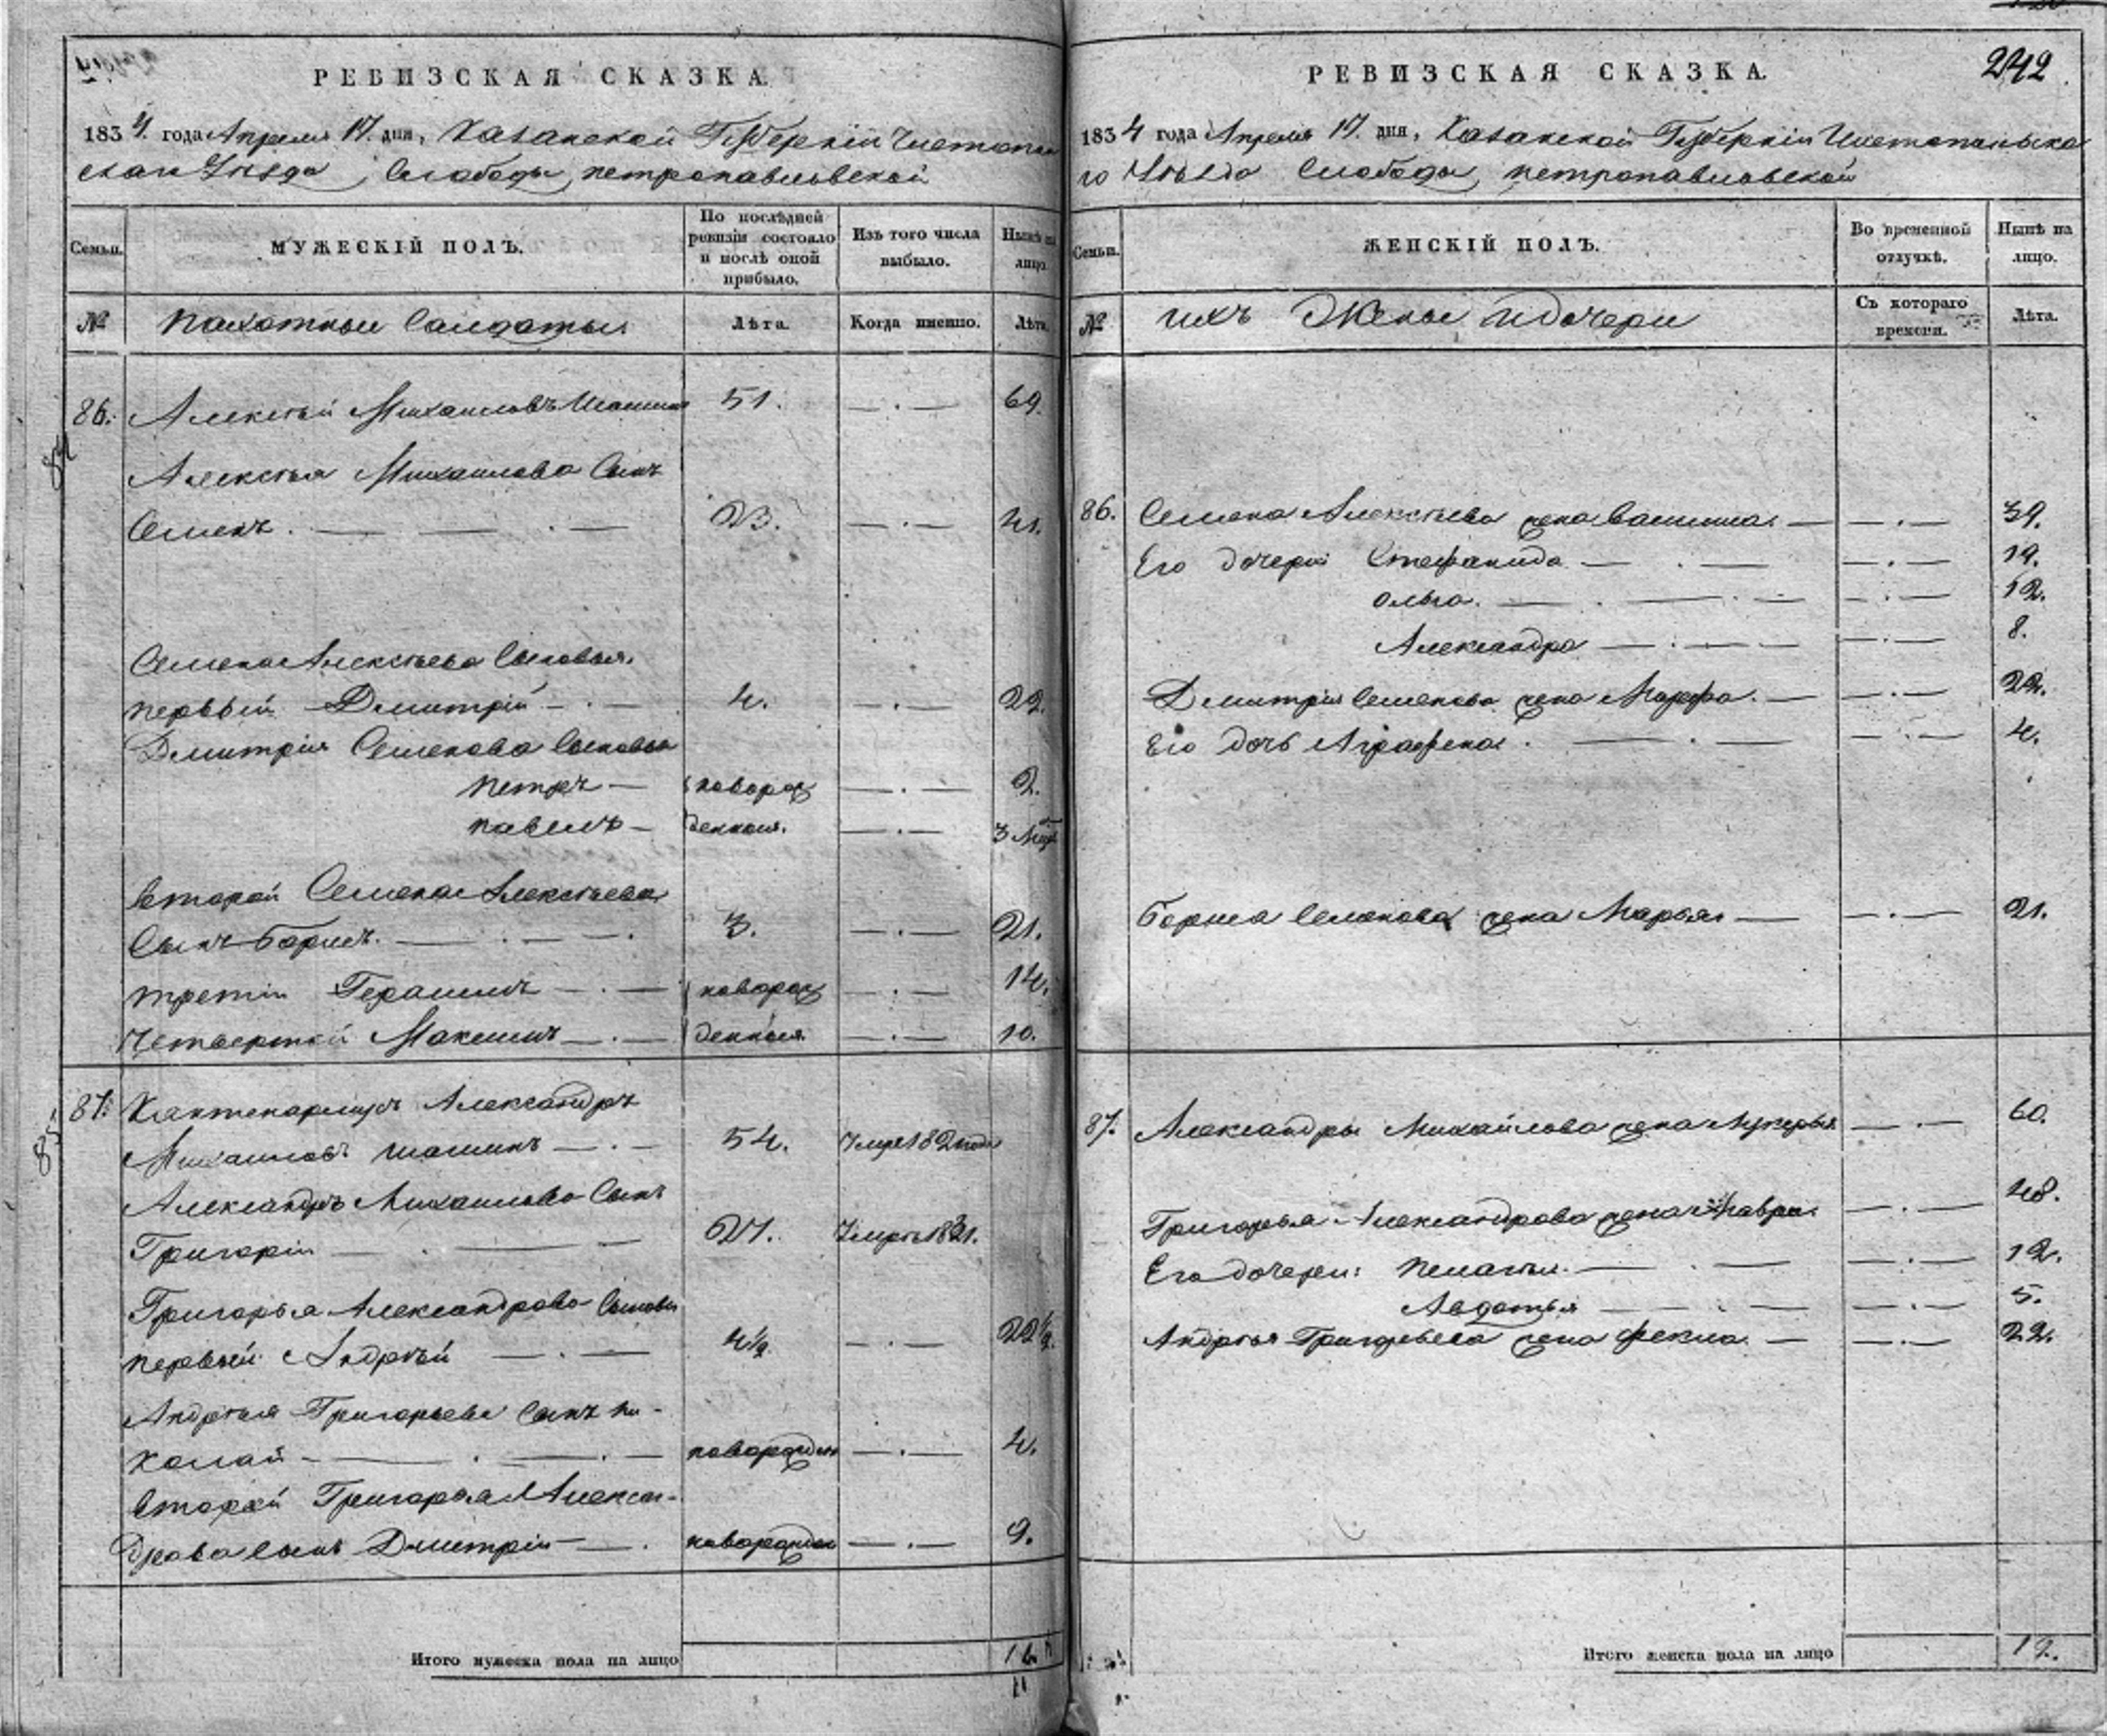 РЕВИЗСКАЯ СКАЗКА.
1834 года Апреля 17. дня, Казанской Губерніи Чистопол
скаго Уезда, Слободы петропавловской
Семьи.
МУЖЕСКІЙ ПОЛЪ.
По послѣдней ревизіи состояло и послѣ оной прибыло.
Изъ того числа выбыло.
Нынѣ на лицо.
№
пахотныи Салдаты
Лѣта.
Когда именно.
Лѣта.
86. Алексѣй Михаиловъ Шашин 51. 69.
84
Алексѣя Михаилова Сынъ
Семенъ. 23. 41.
Семена Алексѣева Сыновья.
первый Дмитрій 4. 22.
Дмитрія Семенова Сыновья
петръ новорож 2.
павелъ денныя. 3 Мѣ
второй Семена Алексѣева
Сынъ Борисъ. 3. 21.
третіи Герасимъ новорож 14.
Четвертой Максимъ денныя. 10.
87. Кантенармусъ Александръ
85
Михаиловъ шашинъ 54. Умре 182 года
Александръ Михаилова Сынъ
Григоріи 27. Умре 1831.
Григорья Александрова Сыновья
первый Андрѣй 4½ 22½.
Андрѣя Григорьева Сынъ Ни-
колай новорожден 4.
второй Григорья Алексан-
дрова сынъ Дмитріи новорожден 9.
Итого мужеска пола на лицо
11
РЕВИЗСКАЯ СКАЗКА.
242
1834 года Апреля 17. дня, Казанской Губерніи Чистопольска
го Уѣзда Слободы петропавловской
Семьи.
ЖЕНСКІЙ ПОЛЪ.
Во временной отлучкѣ.
Нынѣ на лицо.
№
ихъ Жены и дочери
Съ котораго времени.
Лѣта.
86. Семена Алексѣева жена Васиниса. 39.
Его дочери Стефанида 19.
Ольга. 12.
Александра 8.
Дмитрія Семенова жена Марфа. 22.
Его дочь Аграфена. 4.
Бориса Семенова жена Марья 21.
87. Александры Михайлова жена Лукерья 60.
Григорья Александрова жена Мавра. 48.
Его дочери: пелагея. 12.
Авдотья 5.
Андрѣя Григорьева жена фекла. 22.
Итого женска пола на лицо 12.